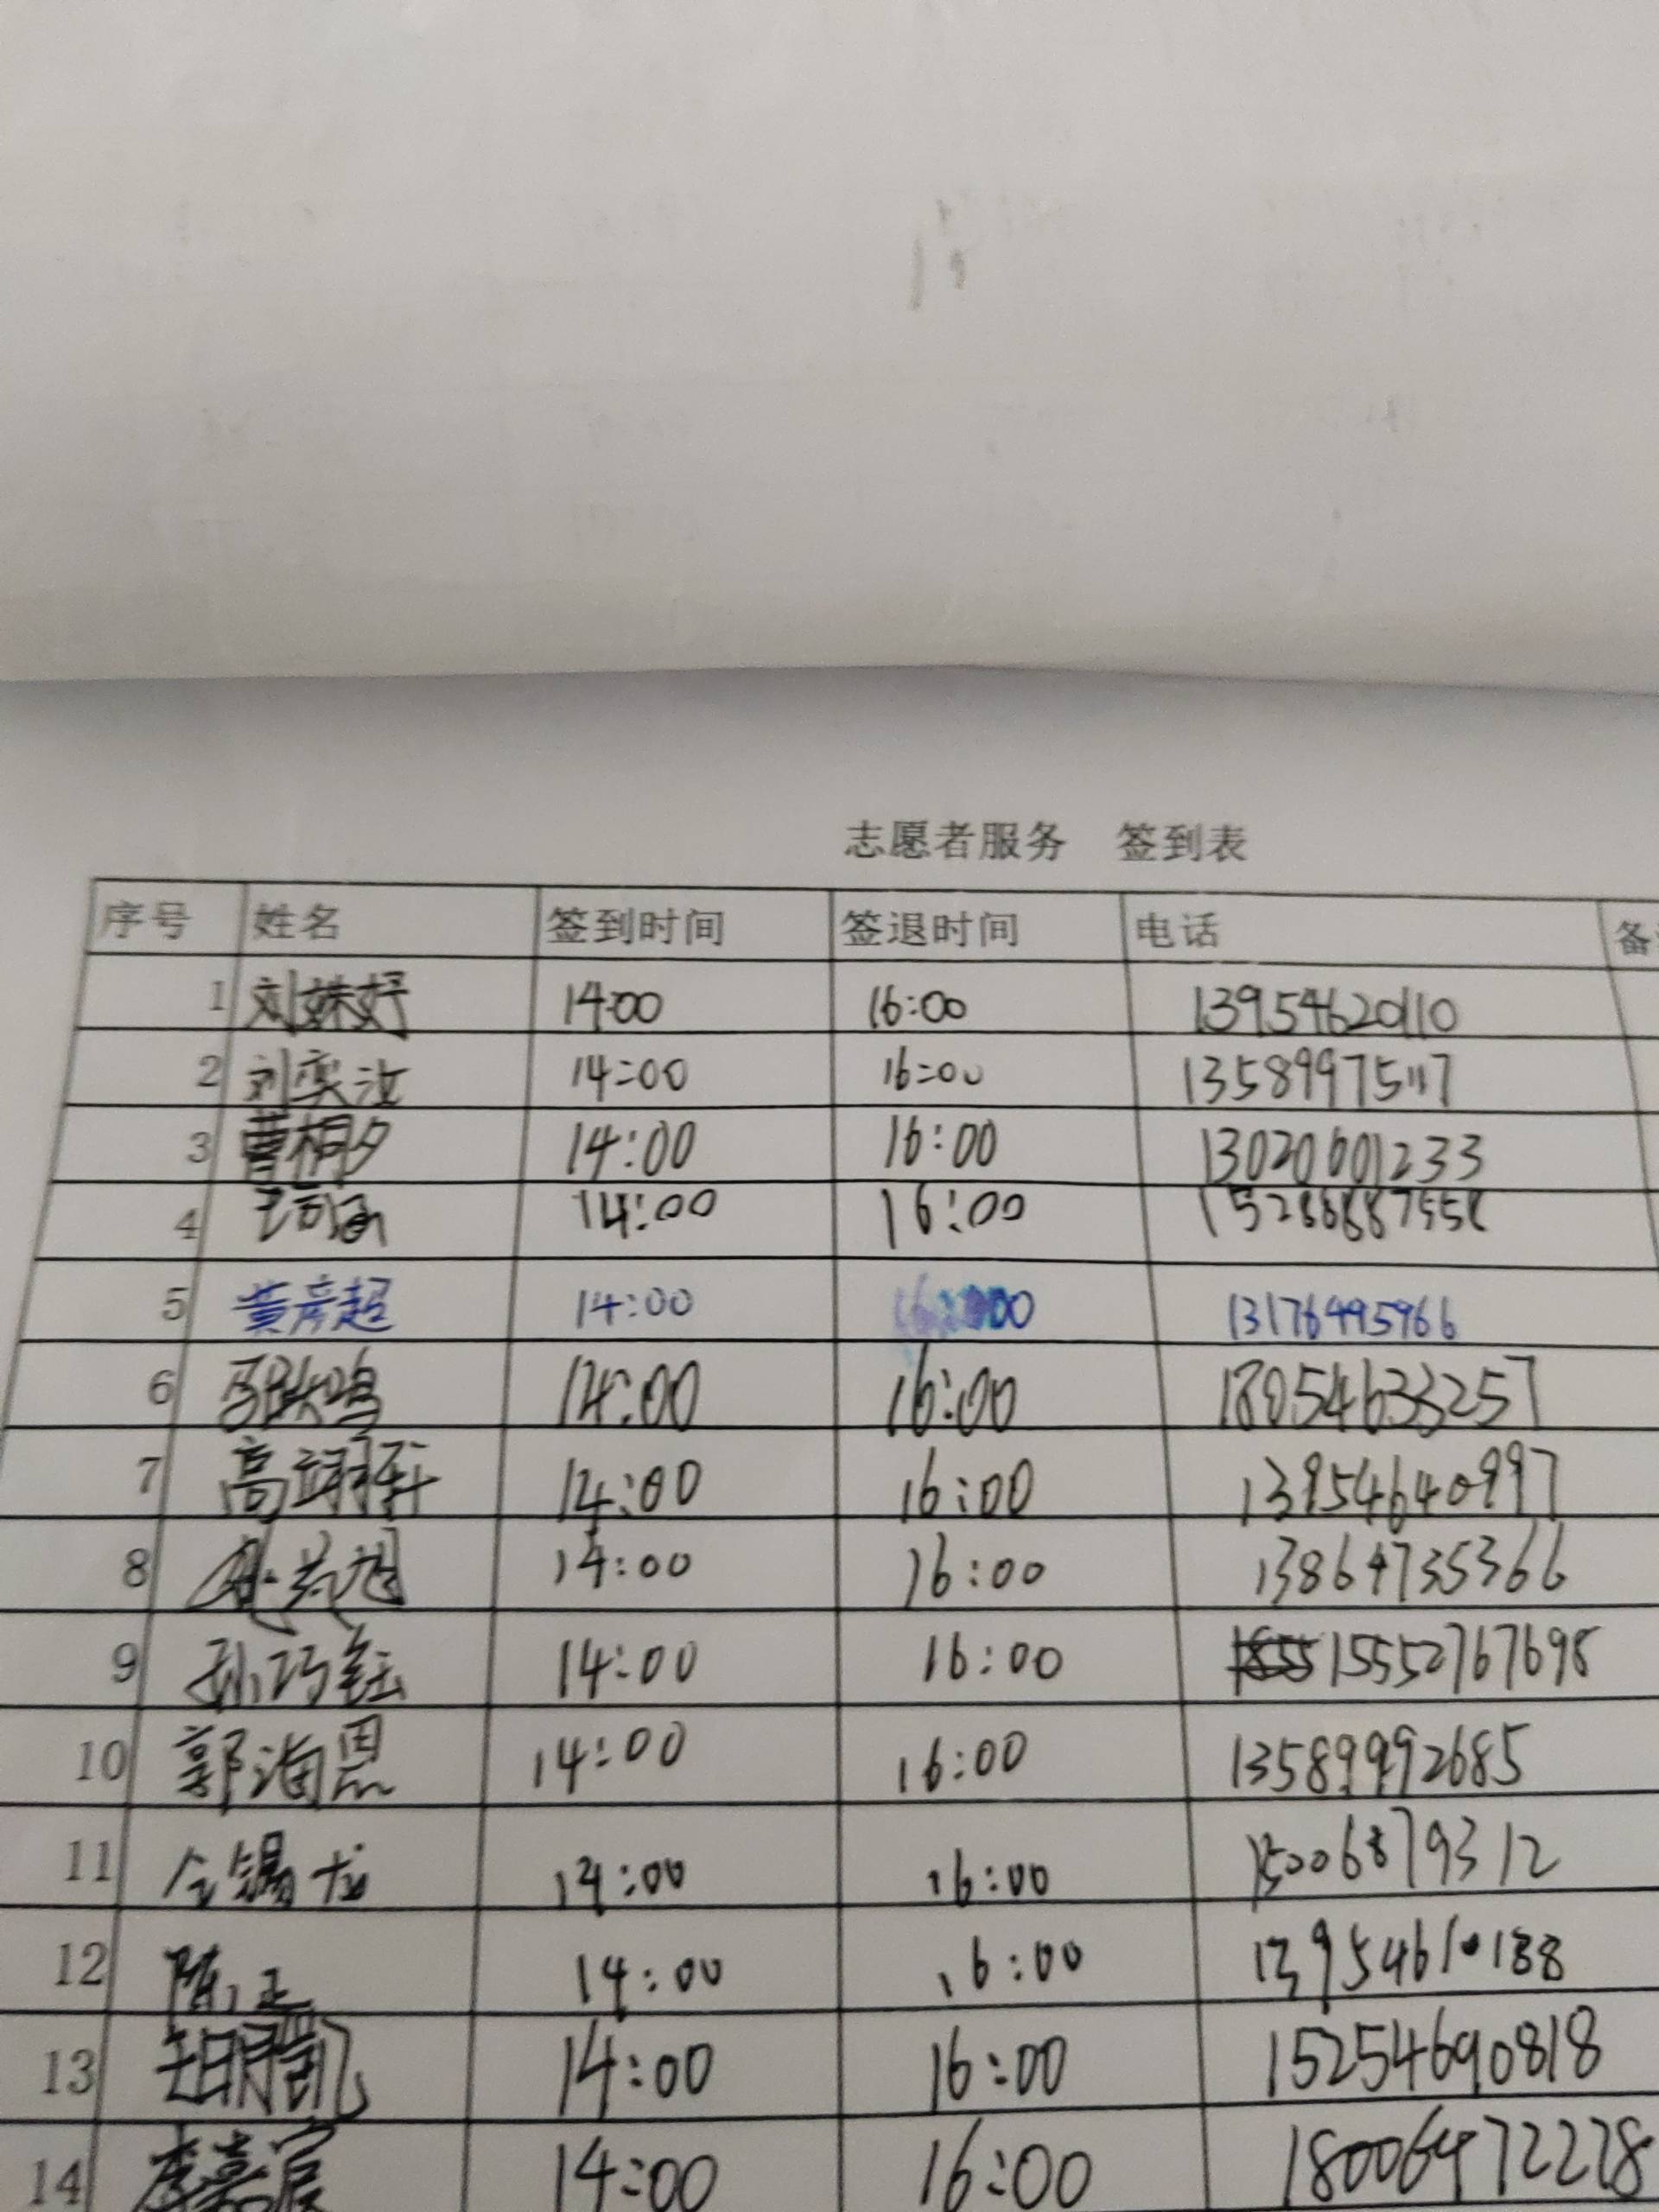 志愿者服务 签到表
序号 姓名 签到时间 签退时间 电话
1 刘姝妤 14:00 16:00 13954620110
2 刘奕汝 14:00 16:00 13589975117
3 曹桐夕 14:00 16:00 13020601233
4 14:00 16:00
5 黄彦超 14:00 16:00
6 14:00 16:00 18054633257
7 高翊轩 14:00 16:00 13954640997
8 14:00 16:00 13864735366
9 孙巧钰 14:00 16:00 15552767698
10 郭海恩 14:00 16:00 13589992685
11 仝锡龙 14:00 16:00 15006879312
12 陈正 14:00 16:00 13954610188
13 14:00 16:00 15254690818
14 李嘉宸 14:00 16:00 18006472228